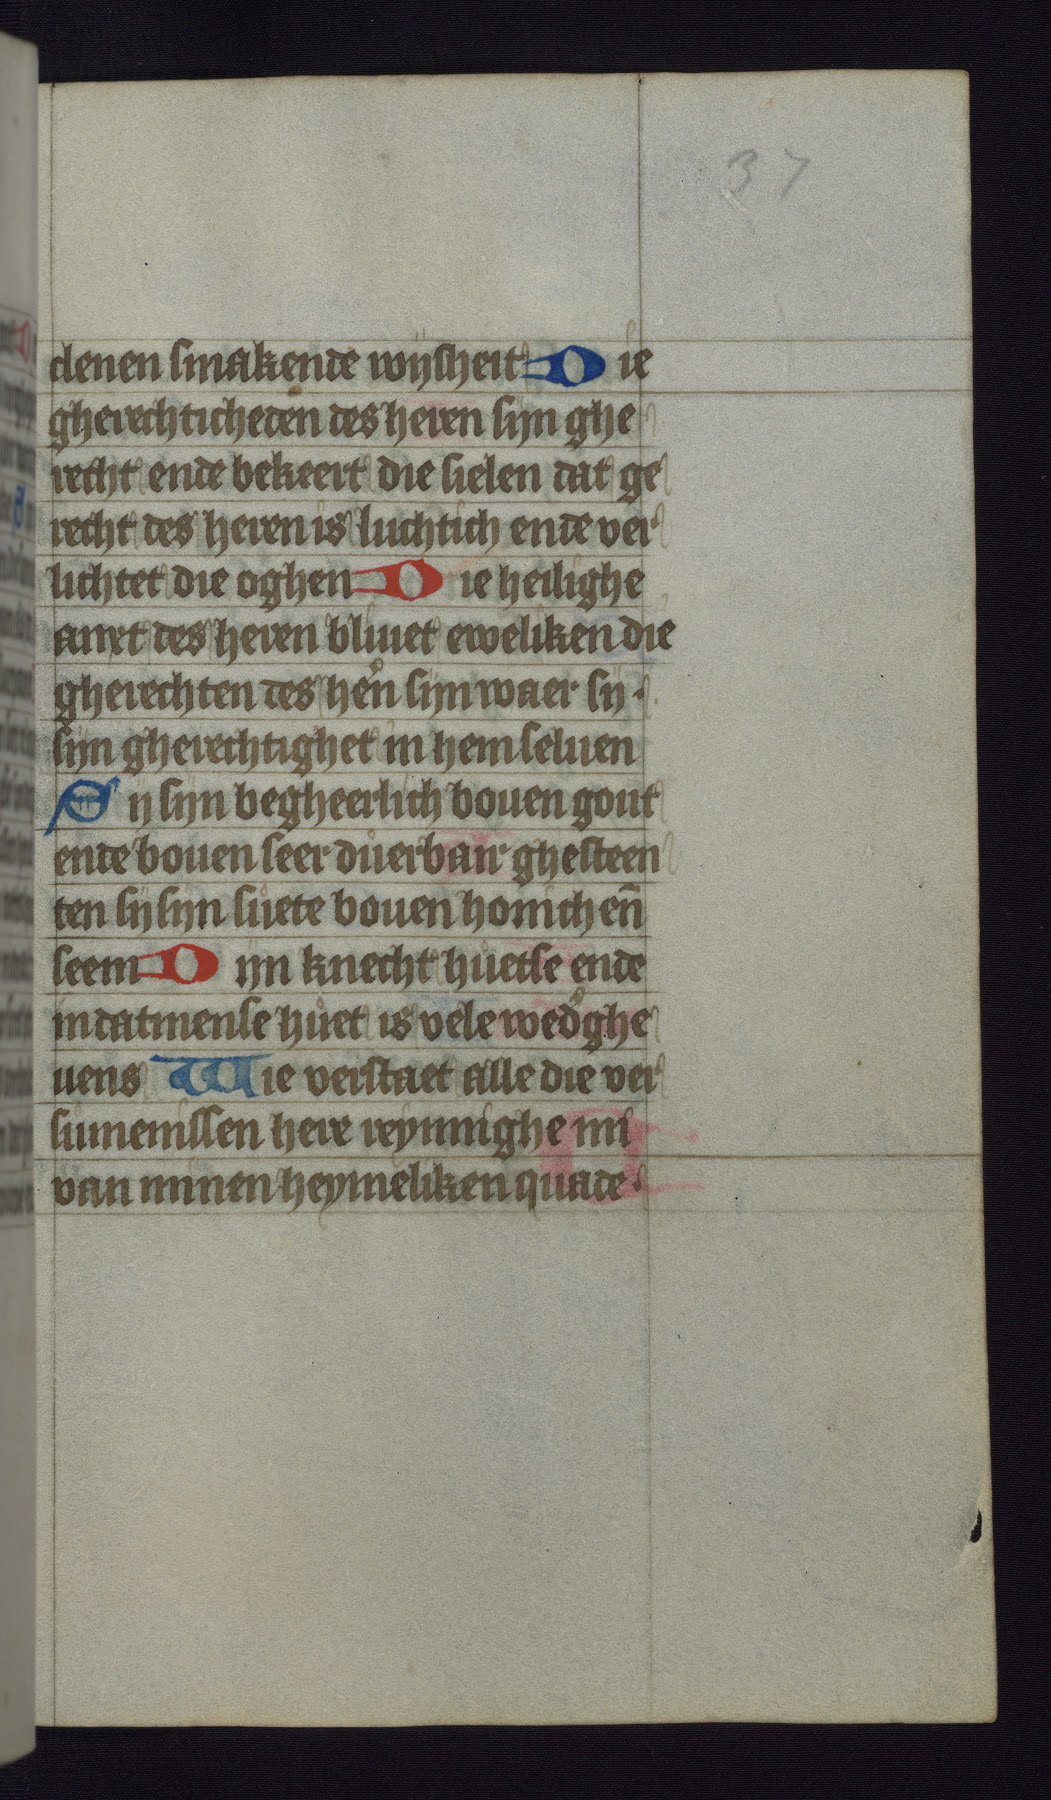 37
denen smakende wijsheit Die
gherechticheden des heren sijn ghe
recht ende bekeert die sielen dat ge
recht des heren is luchtich ende ver
lichtet die oghen Die heilighe
anxt des heren bliuet eweliken die
gherechten des hen̉ sijn waer sij·
sijn gherechtighet in hem seluen
Sij sijn begheerlich bouen gout
ende bouen seer důerbair ghesteen
ten sij sijn sůete bouen honich en̄
seem Dijn knecht hůetse ende
indatmense hůet is vele wed̉ghe
uens Wie verstaet alle die ver
sumenissen here reynnighe mi
van minen heymeliken quade·